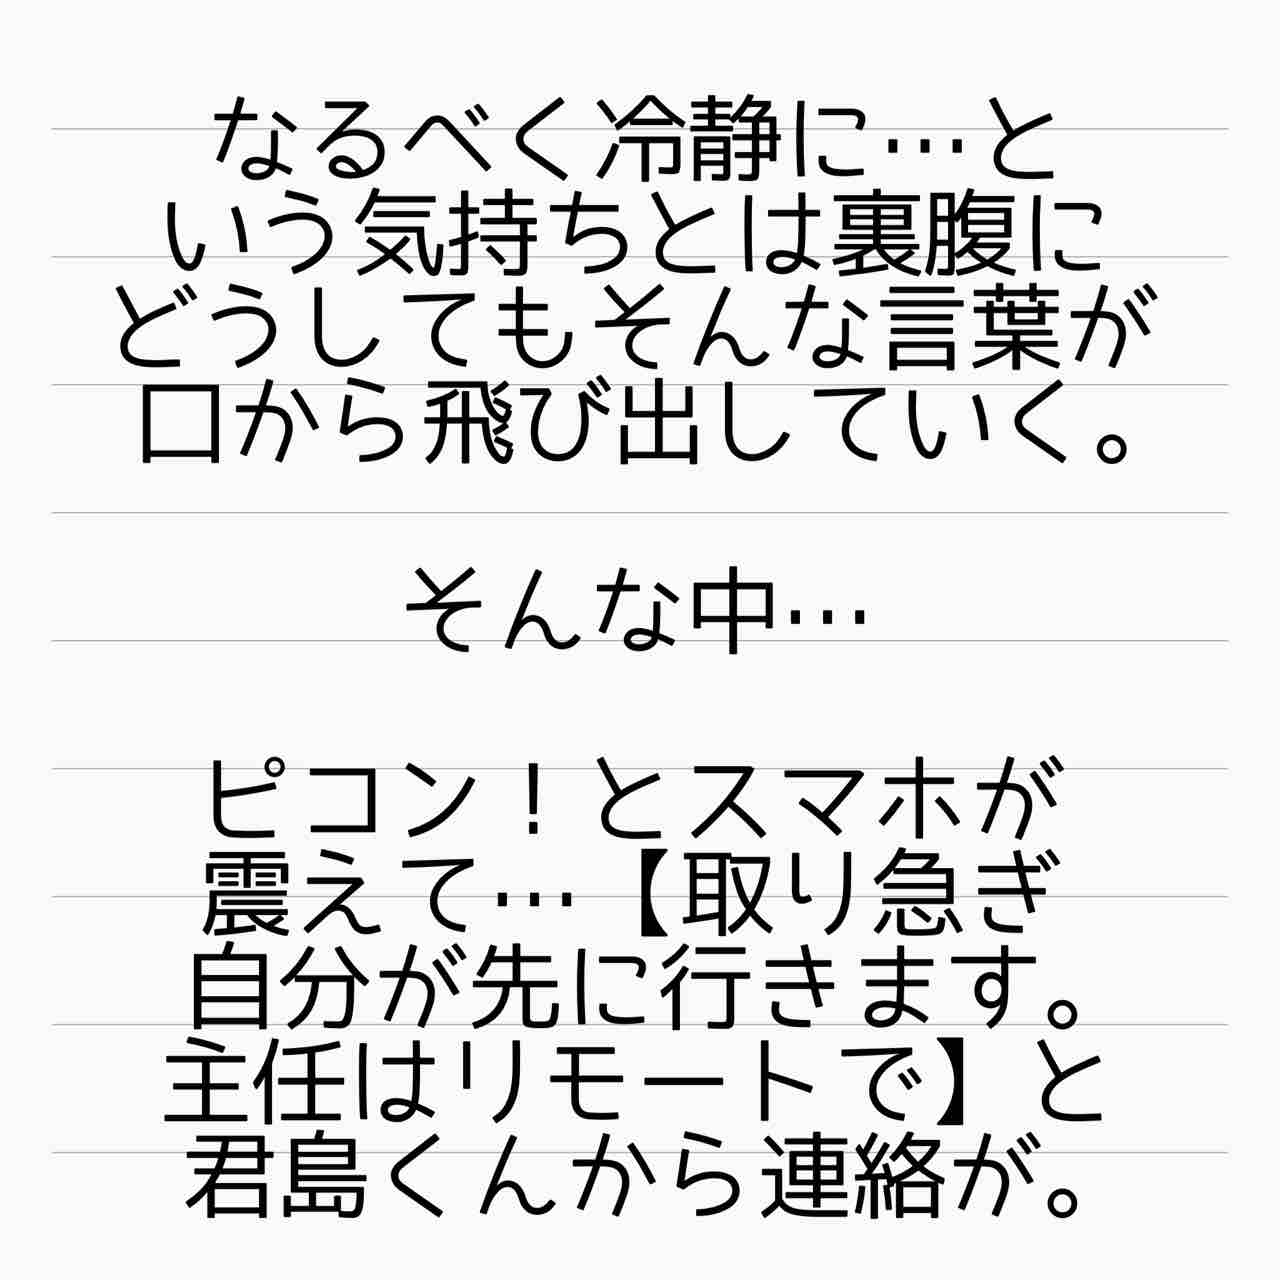 なるべく冷静に…と
いう気持ちとは裏腹に
どうしてもそんな言葉が
口から飛び出していく。
そんな中…
ピコン！とスマホが
震えて…【取り急ぎ
自分が先に行きます。
主任はリモートで】と
君島くんから連絡が。